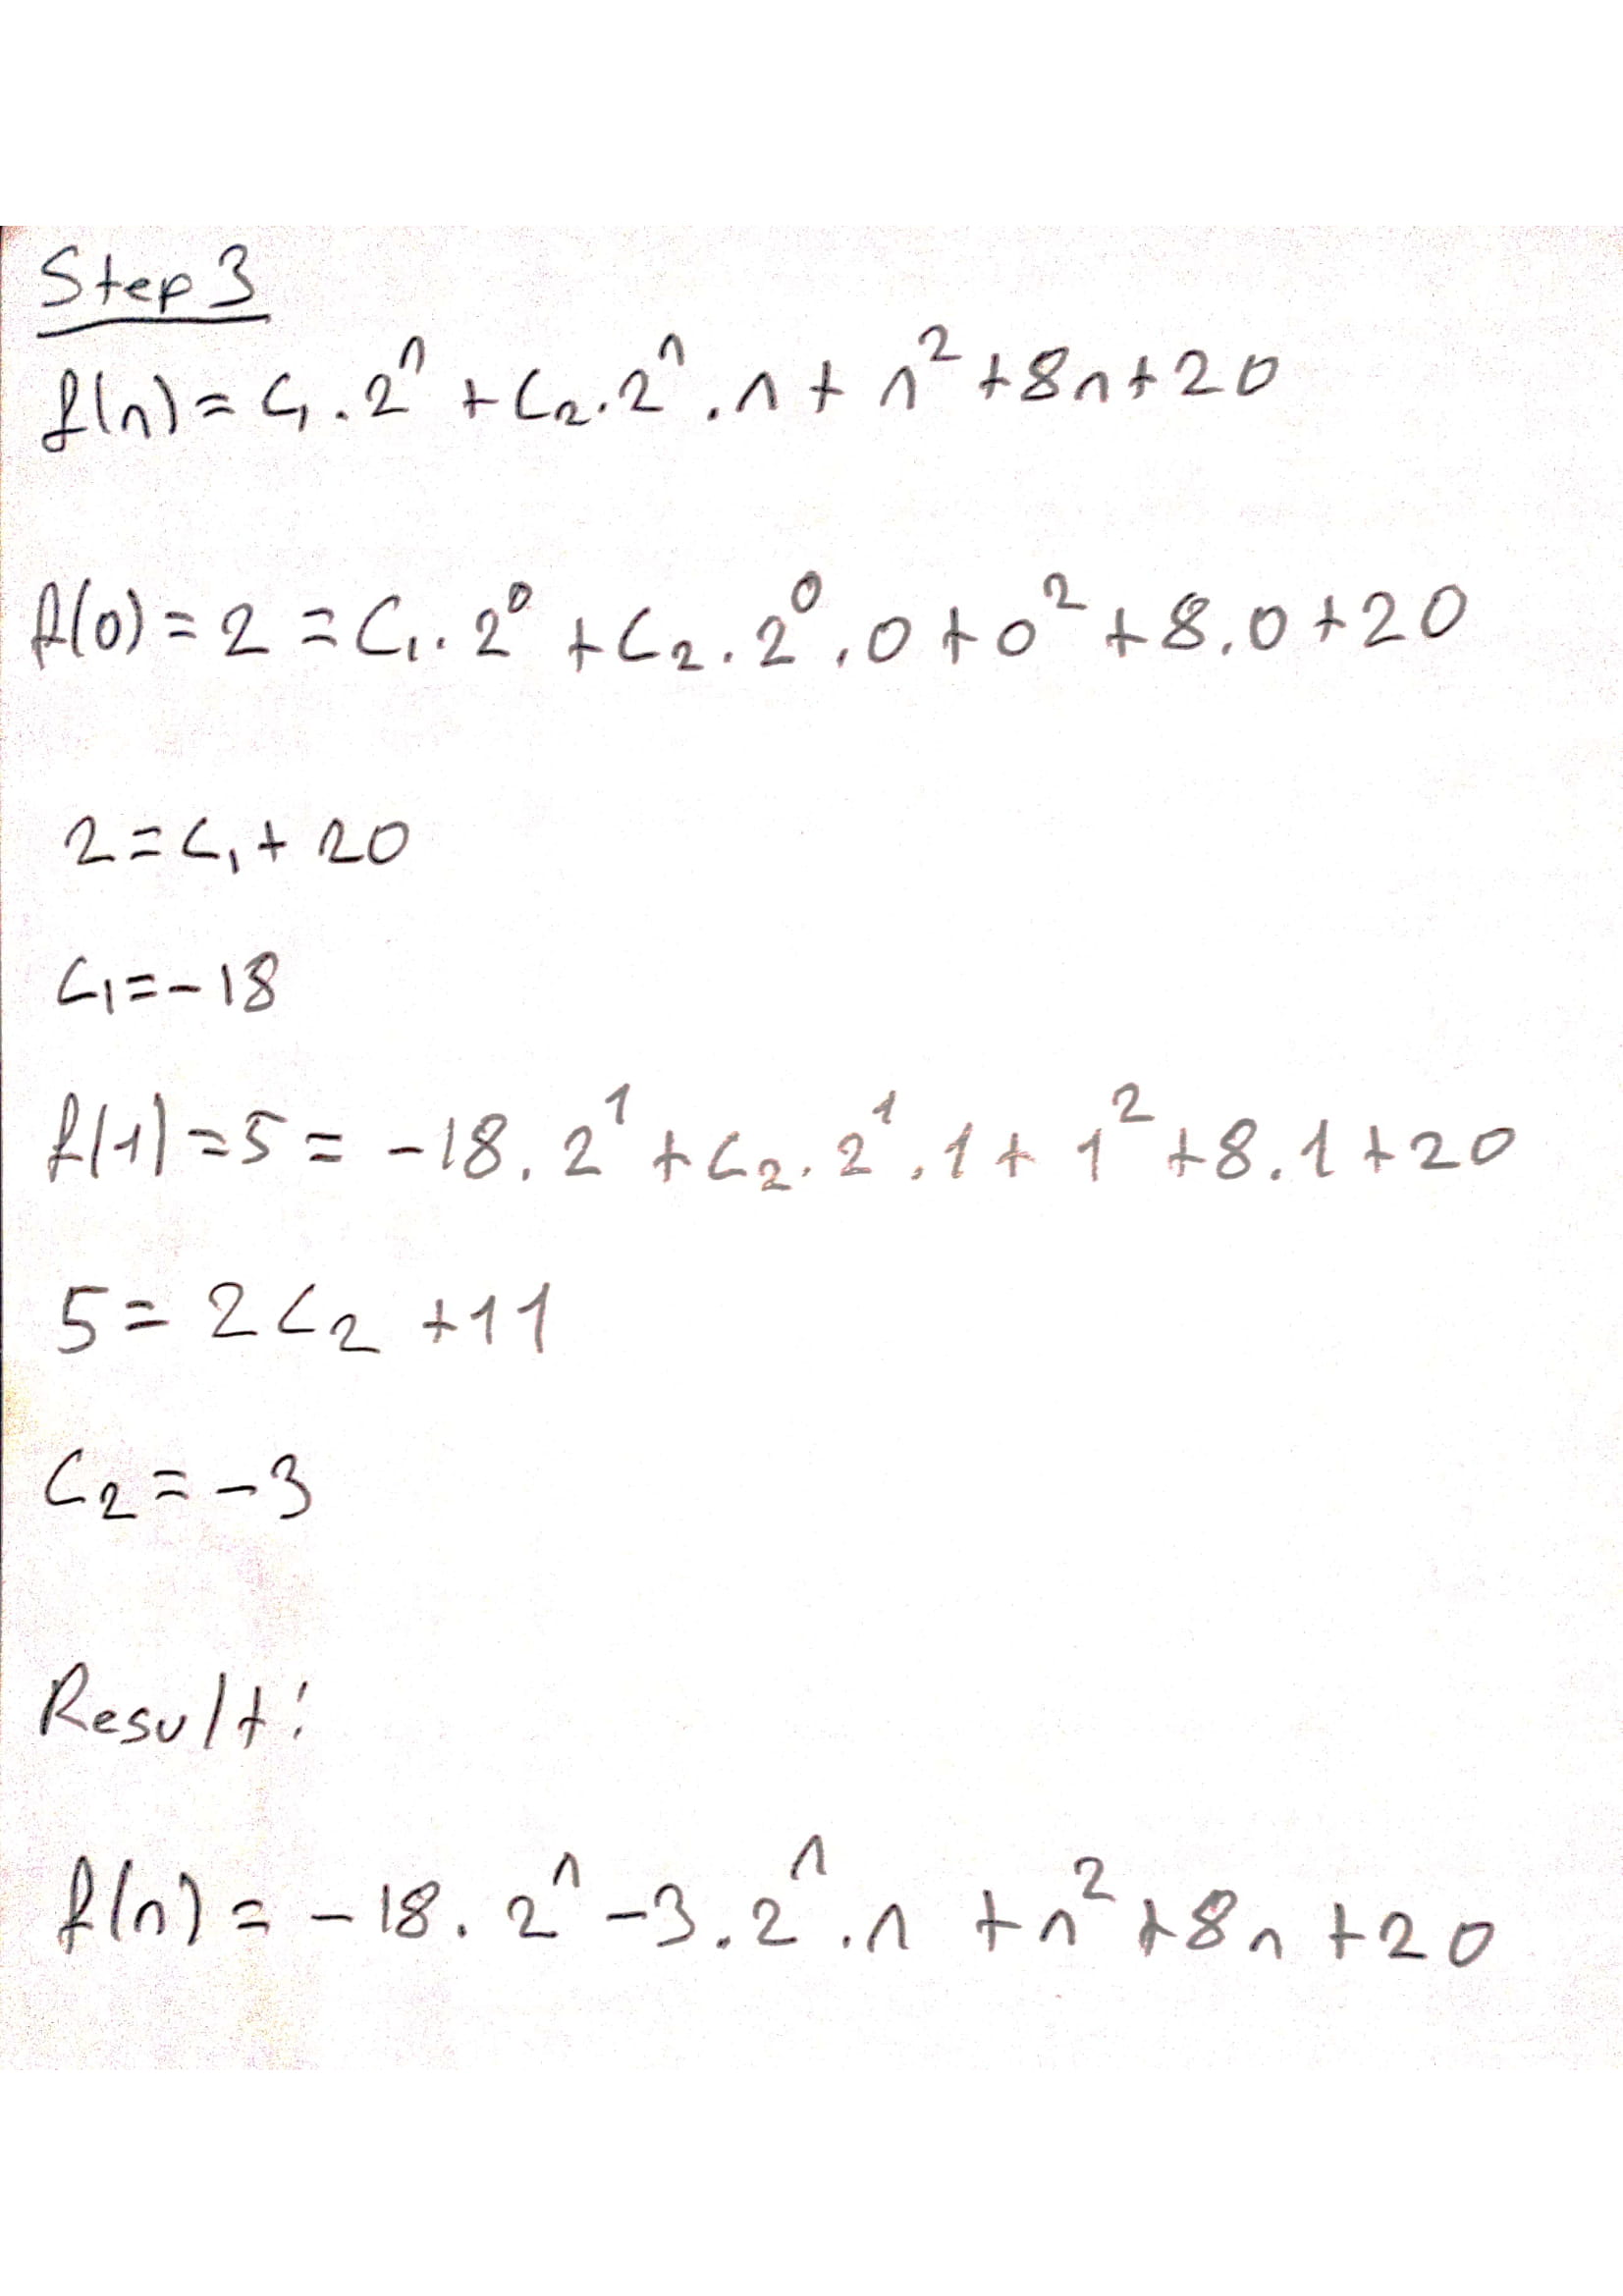 Step 3
f(n) = C₁ . 2ⁿ + C₂ . 2ⁿ . n + n² + 8n + 20
f(0) = 2 = C₁ . 2⁰ + C₂ . 2⁰ . 0 + 0² + 8 . 0 + 20
2 = C₁ + 20
C₁ = -18
f(1) = 5 = -18 . 2¹ + C₂ . 2¹ . 1 + 1² + 8 . 1 + 20
5 = 2C₂ + 11
C₂ = -3
Result:
f(n) = -18 . 2ⁿ - 3 . 2ⁿ . n + n² + 8n + 20